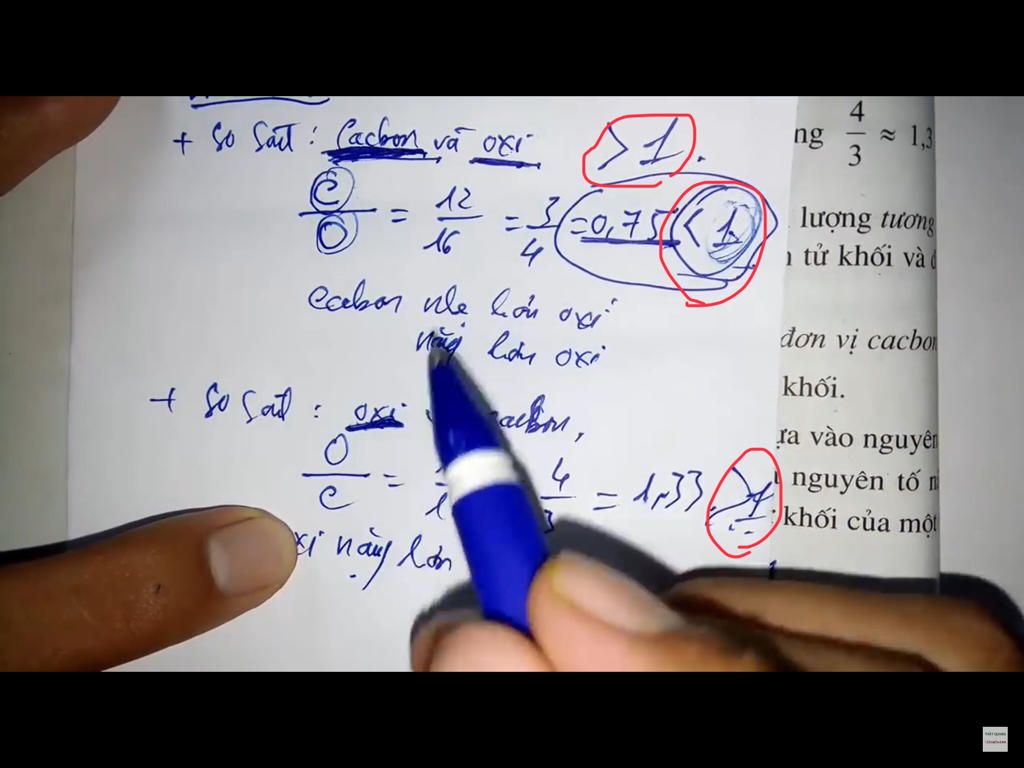 + So sát : Cacbon và oxi > 1 .
C/O = 12/16 = 3/4 = 0,75 < 1
Cacbon nhẹ hơn oxi
nặng hơn oxi
+ So sát : oxi cacbon,
O/C = 4/3 = 1,33 > 1
xi nặng hơn
ng 4/3 ≈ 1,3
lượng tương
tử khối và
đơn vị cacbon
khối.
ựa vào nguyên
nguyên tố
khối của một
THẦY QUANG